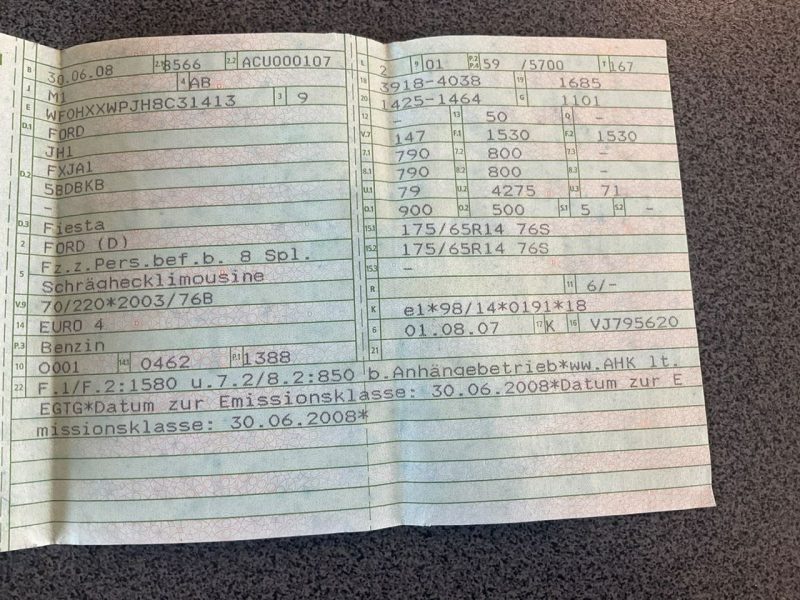 B 30.06.08 2.1 8566 2.2 ACU000107
J M1 4 AB
E WF0HXXWPJH8C31413 3 9
D.1 FORD
JH1
D.2 FXJA1
5BDBKB
-
D.3 Fiesta
2 FORD (D)
5 Fz.z.Pers.bef.b. 8 Spl.
Schräghecklimousine
V.9 70/220*2003/76B
14 EURO 4
P.3 Benzin
10 0001 14.1 0462 P.1 1388
L 2 9 01 P.2 P.4 59 /5700 T 167
18 3918-4038 19 1685
20 1425-1464 G 1101
12 - 13 50 Q -
V.7 147 F.1 1530 F.2 1530
7.1 790 7.2 800 7.3 -
8.1 790 8.2 800 8.3 -
U.1 79 U.2 4275 U.3 71
O.1 900 O.2 500 S.1 5 S.2 -
15.1 175/65R14 76S
15.2 175/65R14 76S
15.3 -
R 11 6/-
K e1*98/14*0191*18
6 01.08.07 17 K 16 VJ795620
21
22 F.1/F.2:1580 u.7.2/8.2:850 b.Anhängebetrieb*ww.AHK lt.
EGTG*Datum zur Emissionsklasse: 30.06.2008*Datum zur E
missionsklasse: 30.06.2008*